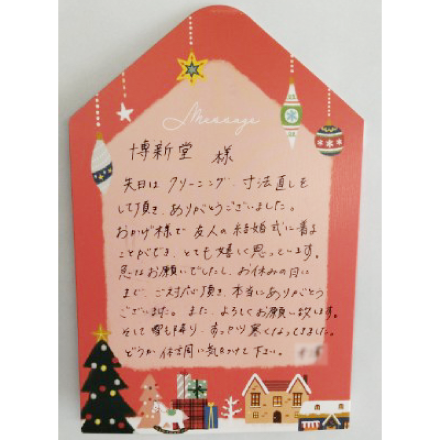 Message
博新堂 様
先日は クリーニング、寸法直しを
して頂き、ありがとうございました。
おかげ様で 友人の結婚式に着る
ことができ、とても嬉しく思っています。
急なお願いでしたし、お休みの日に
まで、ご対応頂き、本当にありがとう
ございます。また、よろしくお願い致します。
そして雪も降り、すっかり寒くなってきました。
どうか 体調に気をつけて下さい。